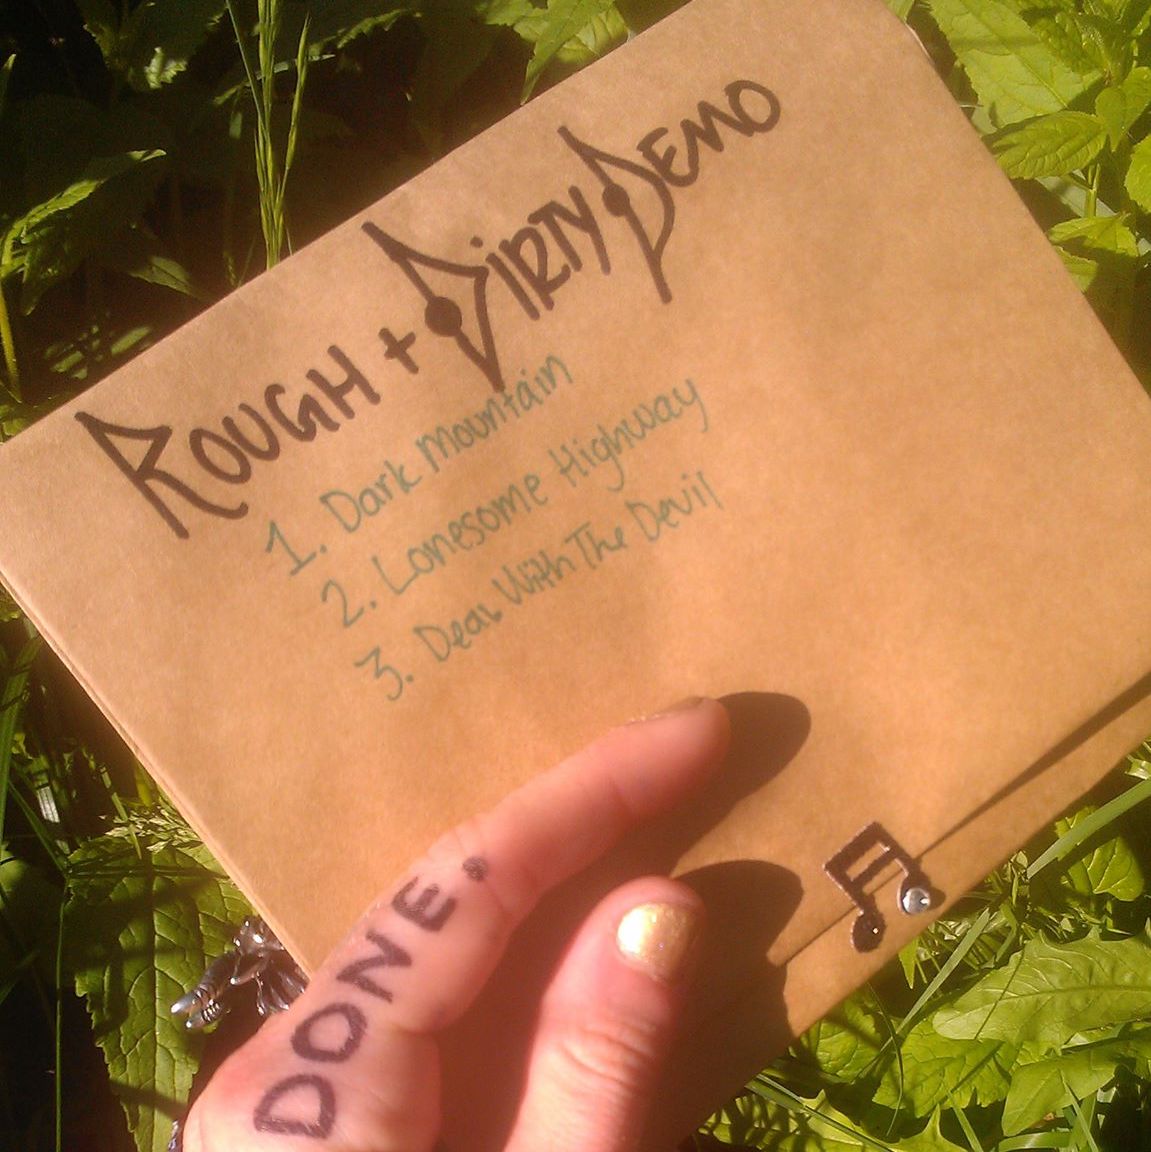 ROUGH + DIRTY DEMO
1. Dark Mountain
2. Lonesome Highway
3. Deal With The Devil
DONE.